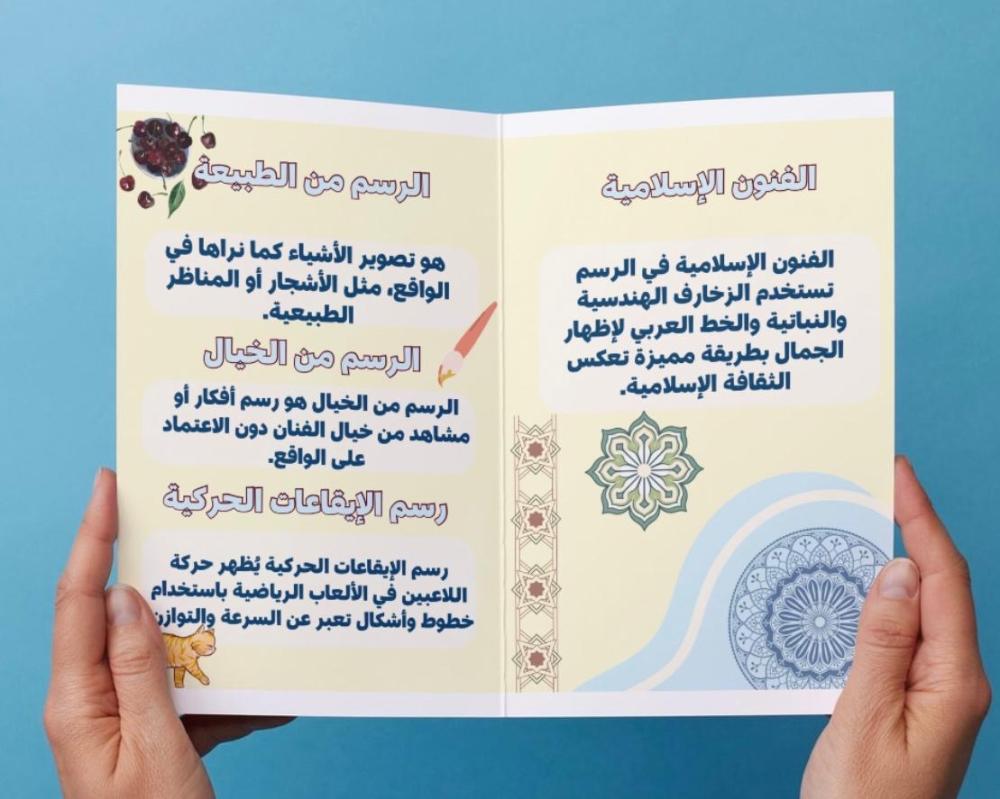 الفنون الإسلامية
الفنون الإسلامية في الرسم
تستخدم الزخارف الهندسية
والنباتية والخط العربي لإظهار
الجمال بطريقة مميزة تعكس
الثقافة الإسلامية.
الرسم من الطبيعة
هو تصوير الأشياء كما نراها في
الواقع، مثل الأشجار أو المناظر
الطبيعية.
الرسم من الخيال
الرسم من الخيال هو رسم أفكار أو
مشاهد من خيال الفنان دون الاعتماد
على الواقع.
رسم الإيقاعات الحركية
رسم الإيقاعات الحركية يُظهر حركة
اللاعبين في الألعاب الرياضية باستخدام
خطوط وأشكال تعبر عن السرعة والتوازن